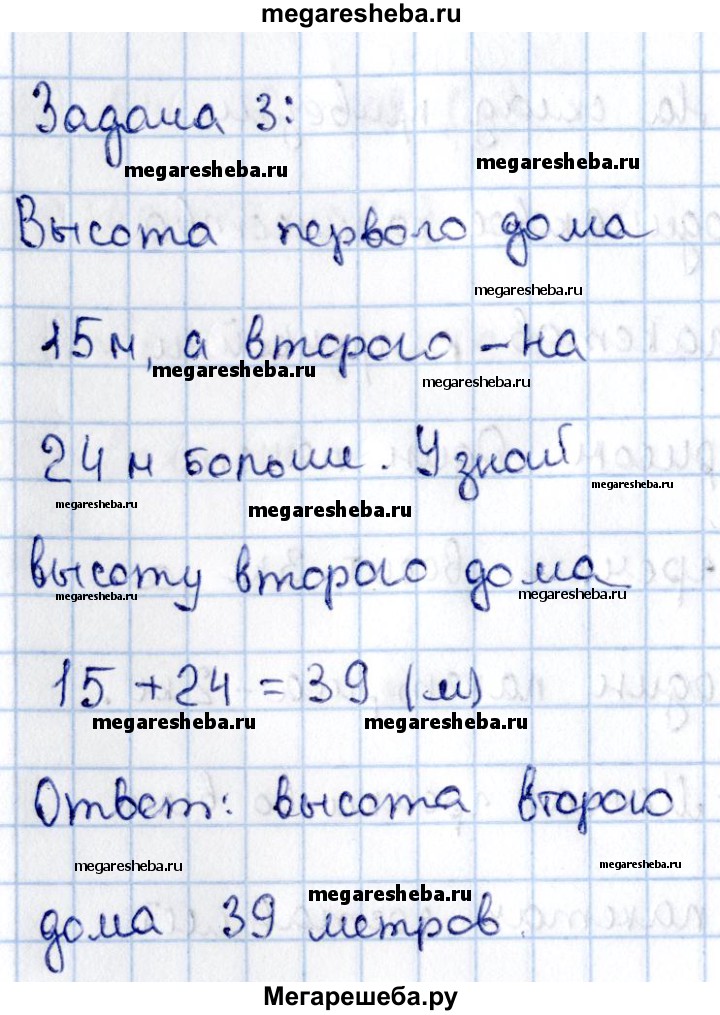 megaresheba.ru
Задача 3:
megaresheba.ru megaresheba.ru
Высота первого дома
megaresheba.ru
15м, а второго - на
megaresheba.ru megaresheba.ru
24 м больше. Узнай
megaresheba.ru megaresheba.ru megaresheba.ru
высоту второго дома
megaresheba.ru megaresheba.ru
15 + 24 = 39 (м)
megaresheba.ru megaresheba.ru
Ответ: высота второго
megaresheba.ru megaresheba.ru
megaresheba.ru
дома 39 метров.
Мегарешеба.ру